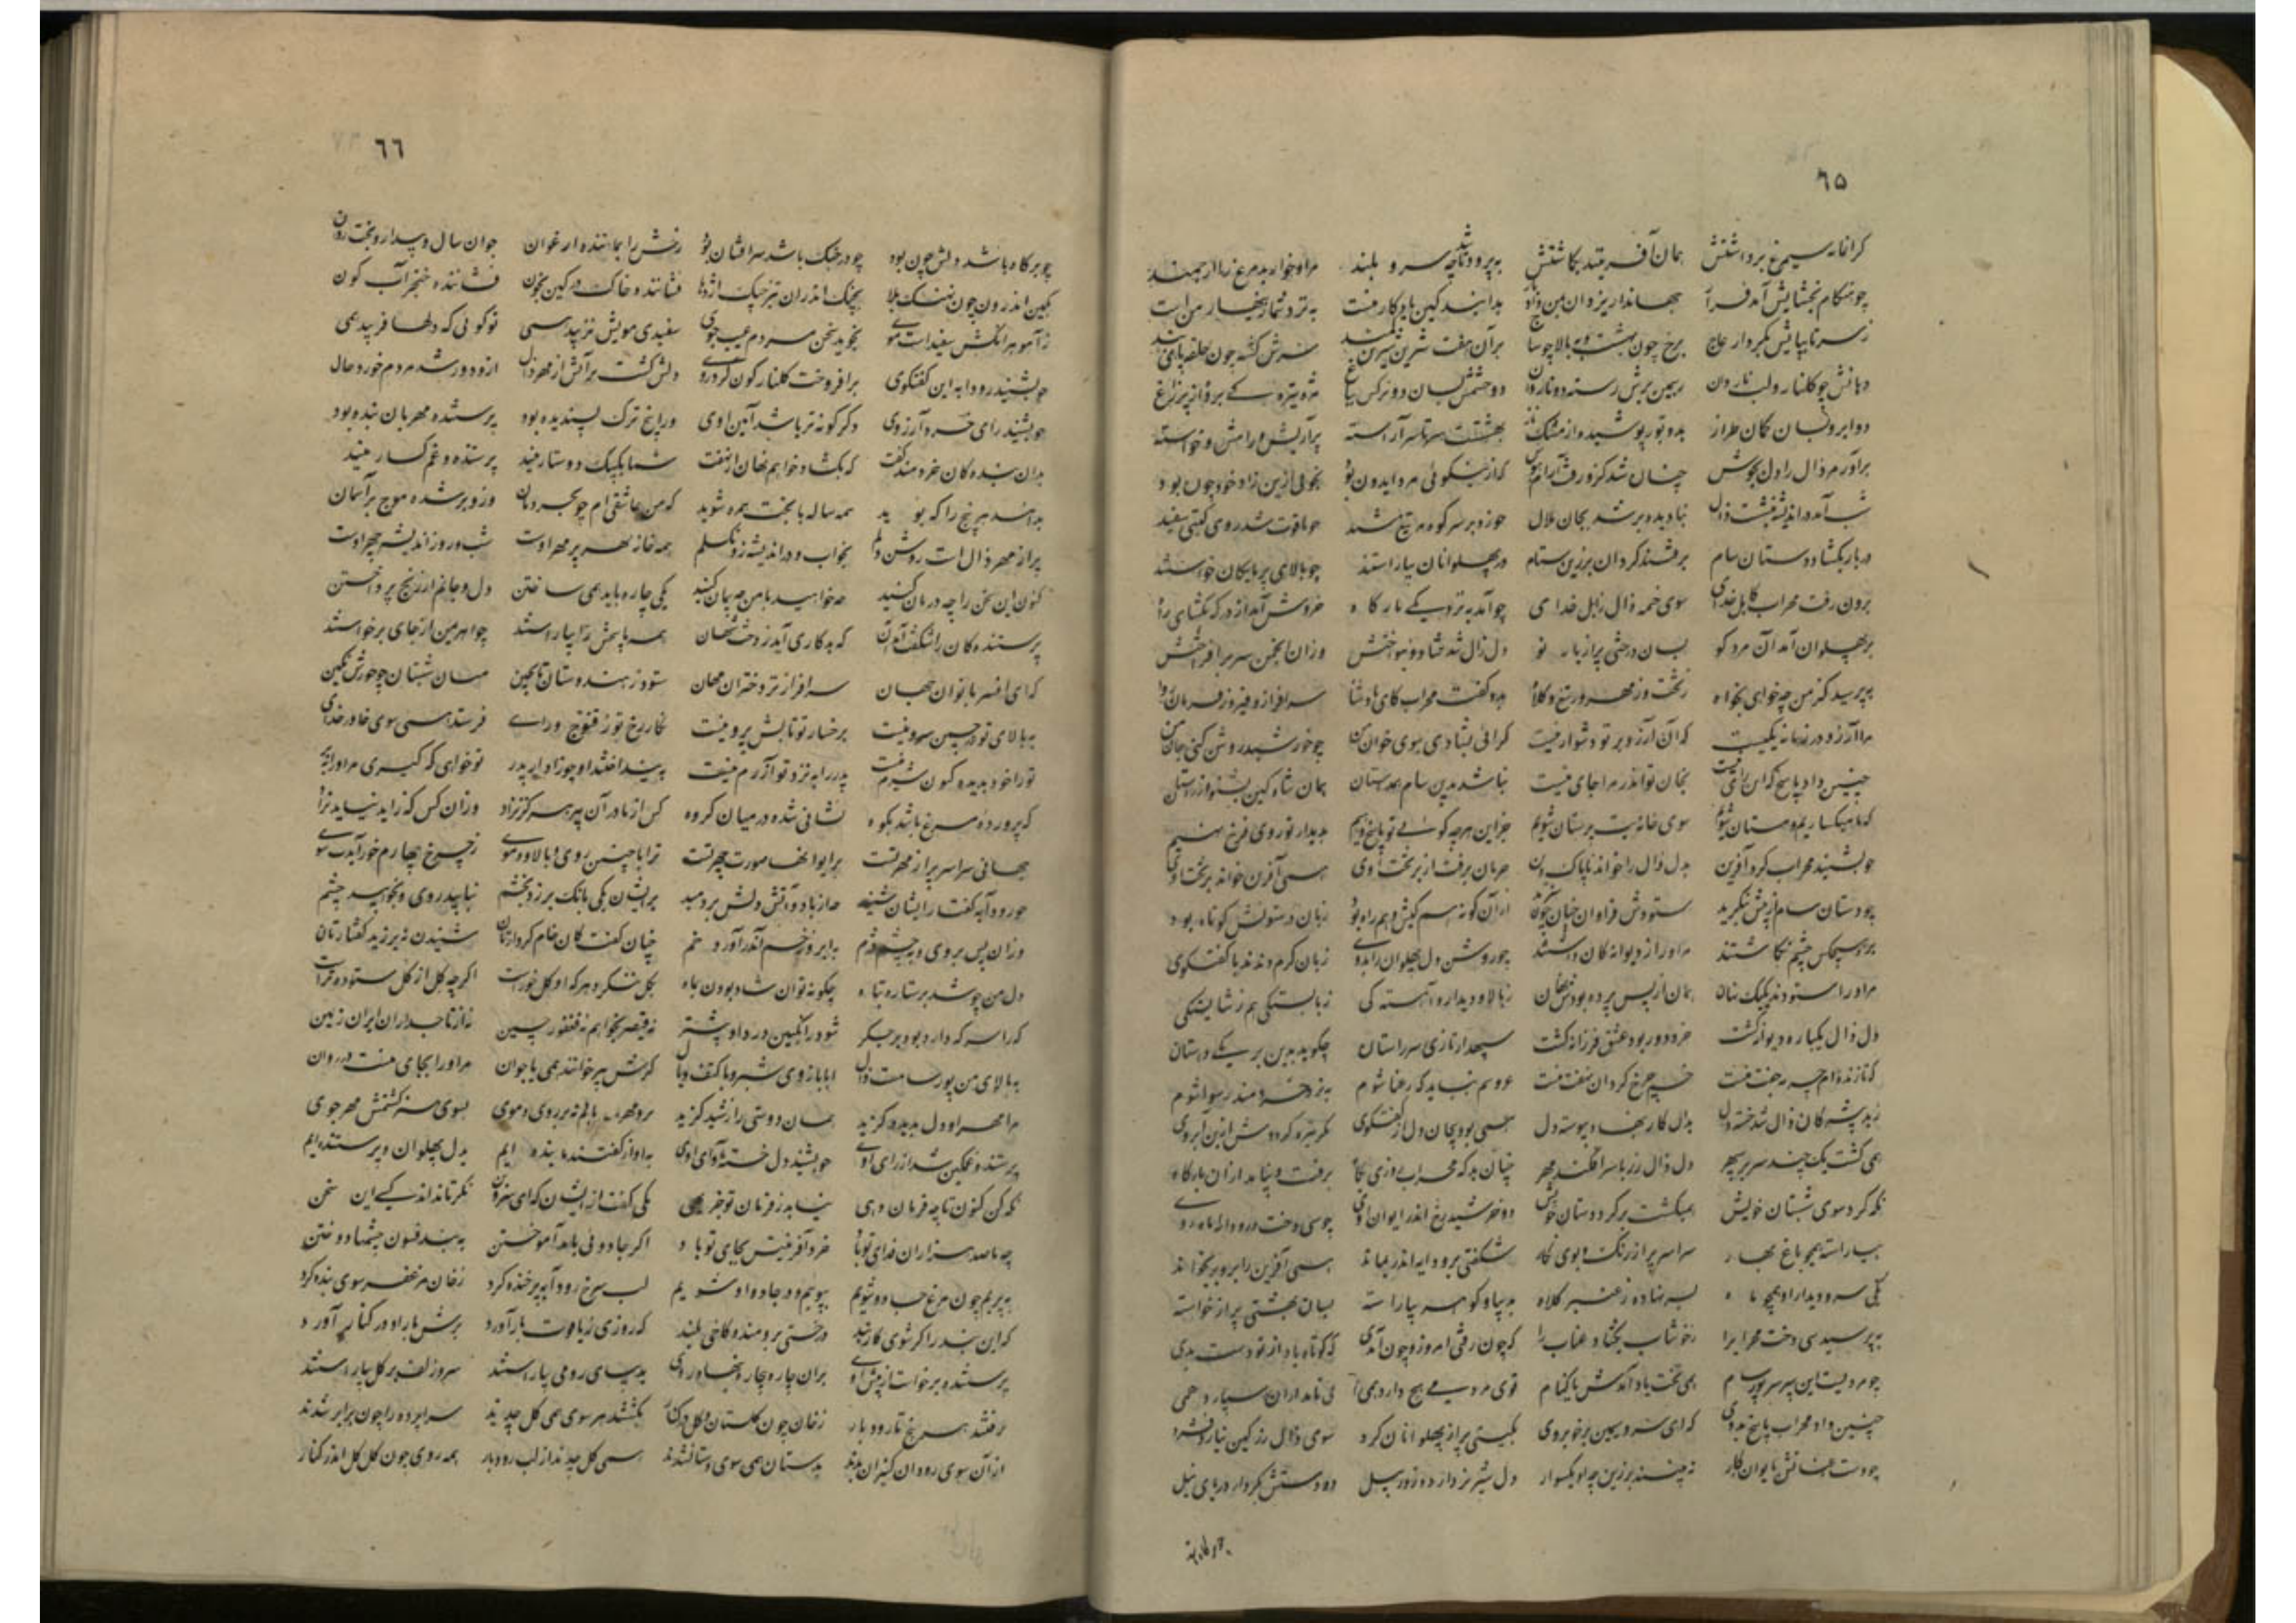 ٦٥
کرانمایه سیمرغ برداشتش همان آفریننده بگماشتش بپرورد تا شد چو سرو بلند مرا و خوار بد مرغ را ارجمند
چو هنگام بخشایش آمد فراز جهاندار یزدان بمن داد باز بدانند کین کار منست بنزد شما زینهار منست
ز سر تا بپایش بکردار عاج برخ چون بهشت و ببالا چو ساج بر آن سفت سیمین سرش گشته چون حلقه پای بند
دهانش چو گلنار و لب ناردان ز سیمین برش رسته دو ناروان دو چشمش بسان دو نرگس بباغ مژه تیرگی برده از پر زاغ
دو ابرو بسان کمان طراز برو توز پوشیده از مشک ناز بهشتیست سرتاسر آراسته پر آرایش و رامش و خواسته
برآورد مر زال را دل بجوش چنان شد کزو رفت آرام و هوش که از نیکوئی مرد ایدون بود بخوبی ازین زاد خود چون بود
شب آمد در اندیشه بنشست زال بنادیده بر شد بجان ملال چو زد بر سر کوه بر تیغ شید چو یاقوت شد روی گیتی سفید
در بار بگشاد دستان سام برفتند گردان بزرین ستام در پهلوانان بیاراستند چو بالای پرمایگان خواستند
برون رفت مهراب کابل خدای سوی خیمه زال زابل خدای چو آمد به نزدیکی بارگاه خروش آمد از در که بگشای راه
بر پهلوان آمد آن مرد گو بسان درختی پر از بار نو دل زال شد شاد و بنواختش وزان انجمن سر برافراختش
بپرسید کز من چه خواهی بخواه ز تخت و ز مهر و ز تیغ و کلاه بدو گفت مهراب کای پادشا سرافراز و فیروز و فرمان روا
مرا آرزو در زمانه یکیست که آن آرزو بر تو دشوار نیست که آئی بشادی سوی خوان من چو خورشید روشن کنی جان من
چنین داد پاسخ که این رای نیست بخان تو اندر مرا جای نیست نباشد بدین سام همداستان همان شاه کین بشنود داستان
که ما میگساریم و مستان شویم سوی خانه بت پرستان شویم جز این هرچه گوئی تو پاسخ دهیم بدیدار تو روی فرخ نهیم
چو بشنید مهراب کرد آفرین بدل زال را خواند ناپاک دین خرامان برفت از بر تخت اوی همی آفرین خواند بر بخت اوی
چو دستان سام از پسش بنگرید ستودش فراوان چنان چون سزید از آن کو نه هم کیش و هم راه بود زبان در ستودنش کوتاه بود
برو هیچکس چشم نگماشتند مر او را ز دیوانگان داشتند چو روشن دل پهلوان را بدوی زبان گرم دیدند با گفتگوی
مر او را ستودند یکیک مهان همان از پس پرده بودش نهان ز بالا و دیدار و آهستگی ز بایستگی هم ز شایستگی
دل زال یکباره دیوانه گشت خرد دور بود عشق فرزانه گشت سپهدار تازی سر راستان چگوید بدین بر یکی داستان
که تا زنده‌ام چرمه جفت منست خم چرخ گردان نهفت منست عروسم نباید که رعنا شوم بنزد خردمند رسوا شوم
ز اندیشگان زال شد خسته دل بدان کار بنهاد پیوسته دل همی بود پیچان دل از گفتگوی
همی گشت یک چند بر سر سپهر دل زال زر باسر آکند مهر چنان بد که مهراب روزی پگاه برفت و بیامد ازان بارگاه
نگه کرد سوی شبستان خویش همیگشت بر گرد دستان خویش دو خورشید رخ اندر ایوان اوی چو سیندخت و رودابه ماه روی
بیاراسته همچو باغ بهار سراسر پر از رنگ و بوی و نگار شگفتی برودابه اندر بماند همی آفرین را برو بر بخواند
یکی سرو دید از او همچو ماه بسر نهاده ز عنبر کلاه بدیبا و گوهر بیاراسته بسان بهشتی پر از خواسته
بپرسید سیندخت مهراب را ز خوشاب بگشاد عناب را که چون رفتی امروز و چون آمدی که کوتاه باد از تو دست بدی
چه مردیست این پیر سر پور سام همی تخت یاد آیدش یا کنام خوی مردمی هیچ دارد همی پی نامداران سپارد همی
چنین داد مهراب پاسخ بدوی که ای سرو سیمین بر خوبروی بگیتی بر از پهلوانان گرد سوی زال زر کین نیارد شمرد
چو دست و عنانش بایوان نگار نه بینند بر زین چو او یکسوار دل شیر نر دارد و زور پیل دو دستش بکردار دریای نیل
٦٦
چو بر گاه باشد دلش چون بود چو در جنگ باشد سرافشان بود رخش را بماننده ارغوان جوان سال و بیدار و بختش جوان
بکین اندرون چون نهنگ بلا بجنگ اندران تیز چنگ اژدها فشاننده خاک در کین بخون فشاننده خنجر آب گون
ز آهو هر آنکش سفیدست موی بجوید سخن مردم عیب جوی سفیدی مویش بزیبد همی تو گوئی که دلها فریبد همی
چو بشنید رودابه این گفتگوی برافروخت گلنار گون کرد روی دلش گشت پر آتش از مهر زال ازو دور شد مردم خورد و حال
چو بشنید رای خرد آرزوی دگرگونه تر باشد آیین اوی ورا پنج ترک پسندیده بود پرستنده مهربان بنده بود
بدان بندگان خردمند گفت که بگشاد خواهم نهان از نهفت شما یکبیک دوستار منید پرستنده و غمگسار منید
بدانید هر پنج را که بوید همه ساله با بخت همره شوید که من عاشقی‌ام چو بحر دمان وزو بر شده موج بر آسمان
پر از مهر زال است روشن دلم بخواب و در اندیشه زو نگسلم همه خانه مهر پر مهر اوست شب و روز اندیشه چهر اوست
کنون این سخن را چه درمان کنید چه خواهید با من چه پیمان کنید یکی چاره باید همی ساختن دل و جانم از رنج پرداختن
پرستنده‌گان را شگفت آمد آن که بدکاری آید ز دخت شهان همه پاسخش را بیاراستند چو اهرمن از جای برخواستند
که ای افسر بانوان جهان سرافرازتر دختران مهان ستوده ز هندوستان تا بچین میان شبستان چو خورشید نگین
ببالای تو در چمن سرو نیست چو رخسار تو تابش پرو نیست نگار رخ تو ز قنوج و رای فرستد همی سوی خاور خدای
ترا خود بدیده درون شرم نیست پدر را بنزد تو آزرم نیست که آنرا که اندازد از بر پدر تو خواهی که گیری مر او را ببر
که پرورده مرغ باشد بکوه نشانی شده در میان گروه کس از مادر آن پیر هرگز نزاد وزان کس که زاید نیاید نژاد
جهانی سراسر پر از مهر تست بر ایوانها صورت چهر تست ترا با چنین روی و بالا و موی ز چرخ چهارم خور آیدت شوی
چو رودابه گفتار ایشان شنید چو از باد آتش دلش بردمید بر ایشان یکی بانگ برزد بخشم بتابید روی و بخوابید چشم
وزان پس بروی و بچشم دژم به ابرو ز خشم اندر آورد خم چنان گفت کان خام گردارتان شنیدن نیرزید گفتارتان
دل من چو شد بر ستاره تباه چگونه توان شاد بودن بماه بگل ننگرد هر که او گل خورست اگرچه گل از گل ستوده ترست
کرا سرکه دارو بود بر جگر شود ز انگبین درد او بیشتر نه قیصر بخواهم نه فغفور چین نه از تاجداران ایران زمین
ببالای من پور سامست زال ابا بازوی شیر و با کتف و یال گرش پیر خوانند همی یا جوان مر او را بجای منست و روان
مرا مهر او دل بدیده گزید همان دوستی را ز شنیده گزید برو مهربانم نه بر روی و موی بسوی هنر گشتمش مهر جوی
پرستنده غمگین شد از رای اوی چو بشنید دل خسته آوای اوی به آواز گفتند ما بنده‌ایم بدل پهلوان و پرستنده‌ایم
نگه کن کنون تا چه فرمان دهی نیاید ز فرمان تو جز بهی یکی گفت از ایشان که ای سروبن نگر تا نداند کسی این سخن
چو ما صد هزاران فدای تو باد خرد آفرینش بجای تو باد اگر جادوئی باید آموختن به بند فسون چشمها دوختن
بپریم چون مرغ جادو شویم بپوییم و در جاده آهو شویم لب سرخ رودابه پر خنده کرد رخان معصفر سوی بنده کرد
که این بند را گر شوی کاربند درختی برومند و کاخی بلند که روزی ز یاقوت بار آورد برش را باد در کنار آورد
پرستنده برخاست از پیش اوی بران چاره بیچاره بنهاد روی بدیبای رومی بیاراستند سر زلف بر گل بپیراستند
برفتند هر پنج تا رودبار رخان چون گلستان و گل در کنار بگشتند هر سوی همی گل چیدند سراپرده را چون برابر شدند
از آن سوی رود آن کنیزان بدند بدستان همی سوی دستان شدند همی گل چدند از لب رودبار همه روی چون گل گل اندر کنار